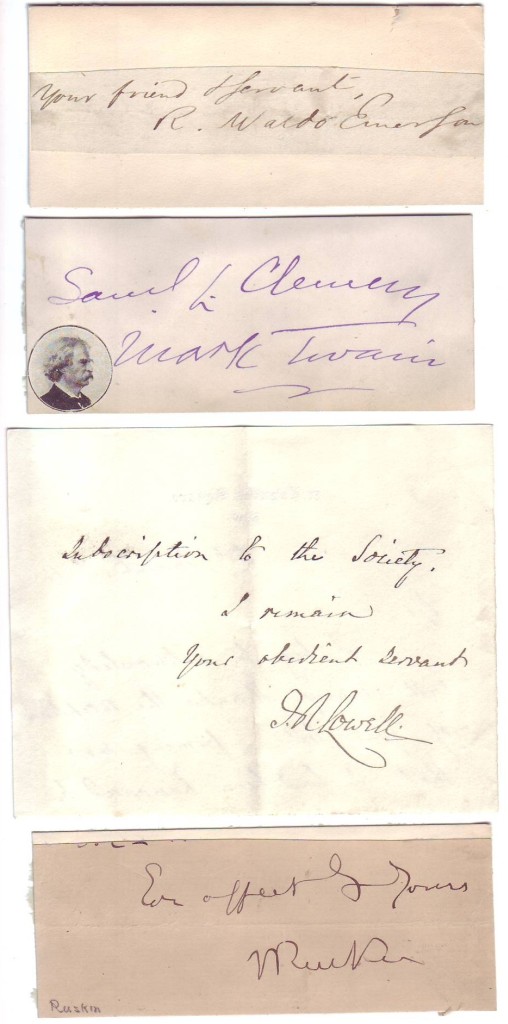 Your friend & servant,
R. Waldo Emerson
Saml L. Clemens
Mark Twain
Subscription to the Society.
I remain
Your obedient servant
J. R. Lowell.
Ever affectly Yours
J Ruskin
Ruskin